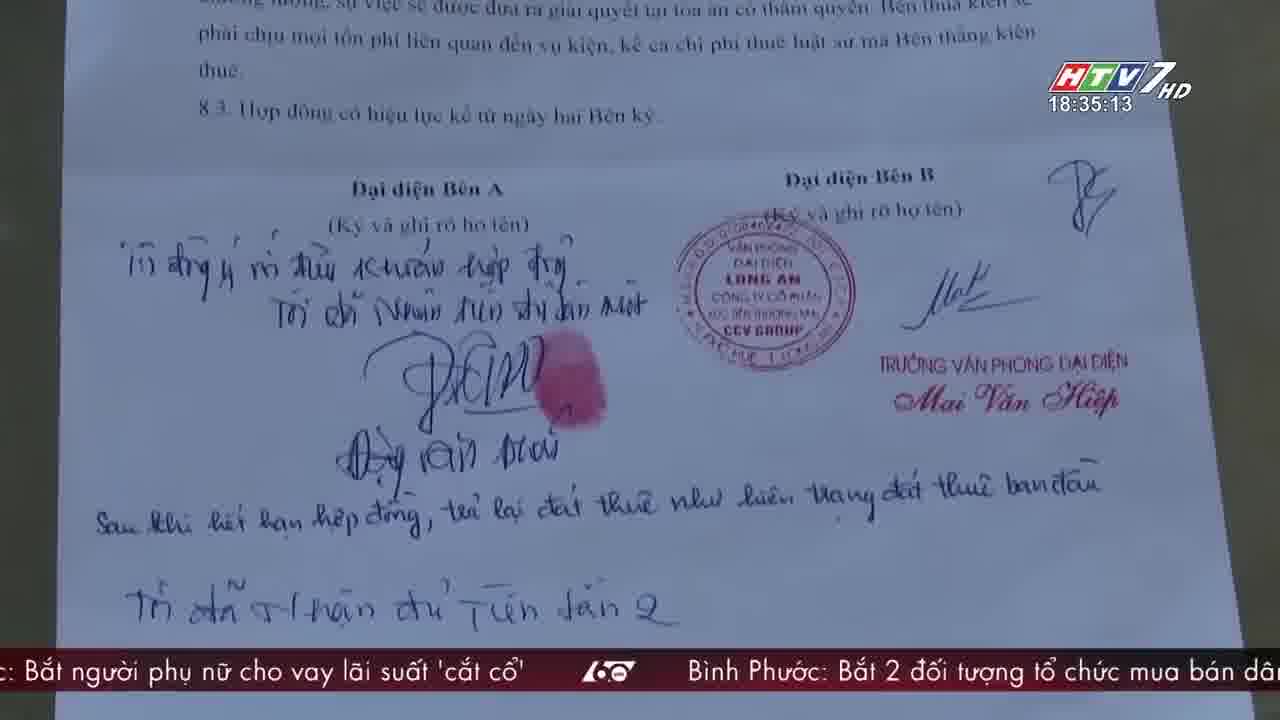 thương lượng, sự việc sẽ được đưa ra giải quyết tại tòa án có thẩm quyền. Bên thua kiện sẽ
phải chịu mọi tổn phí liên quan đến vụ kiện, kể cả chi phí thuê luật sư mà Bên thắng kiện
thuê.
8.3. Hợp đồng có hiệu lực kể từ ngày hai Bên ký.
HTV7 HD
18:35:13
Đại diện Bên A
(Ký và ghi rõ họ tên)
Đại diện Bên B
(Ký và ghi rõ họ tên)
Tôi đồng ý điều khoản hợp đồng
Tôi đã nhận tiền đủ lần một
VĂN PHÒNG
ĐẠI DIỆN
LONG AN
CÔNG TY CỔ PHẦN
XÚC TIẾN THƯƠNG MẠI
CCV GROUP
TRƯỞNG VĂN PHÒNG ĐẠI DIỆN
Mai Văn Hiệp
Sau khi hết hạn hợp đồng, trả lại đất thuê như hiện trạng đất thuê ban đầu
Tôi đã nhận đủ Tiền lần 2
c: Bắt người phụ nữ cho vay lãi suất 'cắt cổ'
60
Bình Phước: Bắt 2 đối tượng tổ chức mua bán dâ